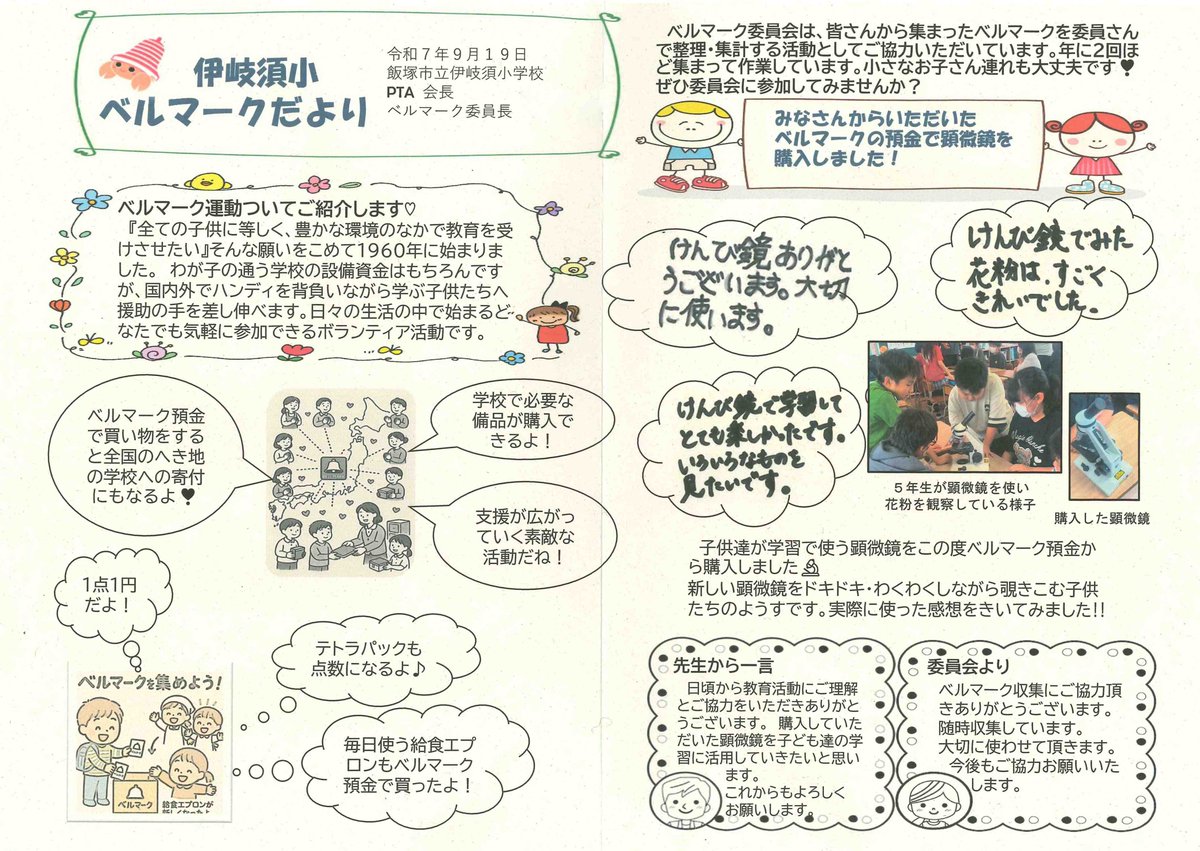 伊岐須小
ベルマークだより
令和7年9月19日
飯塚市立伊岐須小学校
PTA 会長
ベルマーク委員長
ベルマーク運動ついてご紹介します♡
『全ての子供に等しく、豊かな環境のなかで教育を受
けさせたい』そんな願いをこめて1960年に始まりま
した。 わが子の通う学校の設備資金はもちろんです
が、国内外でハンディを背負いながら学ぶ子供たちへ
援助の手を差し伸べます。日々の生活の中で始まるど
なたでも気軽に参加できるボランティア活動です。
ベルマーク預金
で買い物をする
と全国のへき地
の学校への寄付
にもなるよ♥
学校で必要な
備品が購入で
きるよ！
支援が広がっ
ていく素敵な
活動だね！
1点1円
だよ！
テトラパックも
点数になるよ♪
毎日使う給食エプ
ロンもベルマーク
預金で買ったよ！
ベルマークを集めよう！
ベルマーク
給食エプロンが
ベルマーク委員会は、皆さんから集まったベルマークを委員さん
で整理・集計する活動としてご協力いただいています。年に2回ほ
ど集まって作業しています。小さなお子さん連れも大丈夫です♥
ぜひ委員会に参加してみませんか？
みなさんからいただいた
ベルマークの預金で顕微鏡を
購入しました！
けんび鏡ありがと
うございます。大切
に使います。
けんび鏡でみた
花粉は、すごく
きれいでした。
けんび鏡で学習して
とても楽しかったです。
いろいろなものを
見たいです。
5年生が顕微鏡を使い
花粉を観察している様子
購入した顕微鏡
子供達が学習で使う顕微鏡をこの度ベルマーク預金か
ら購入しました🔬
新しい顕微鏡をドキドキ・わくわくしながら覗きこむ子供
たちのようすです。実際に使った感想をきいてみました!!
先生から一言
日頃から教育活動にご理解
とご協力をいただきありがと
うございます。 購入していた
だいた顕微鏡を子ども達の学
習に活用していきたいと思い
ます。
これからもよろしく
お願いします。
委員会より
ベルマーク収集にご協力頂
きありがとうございます。
随時収集しています。
大切に使わせて頂きます。
今後もご協力お願いいた
します。